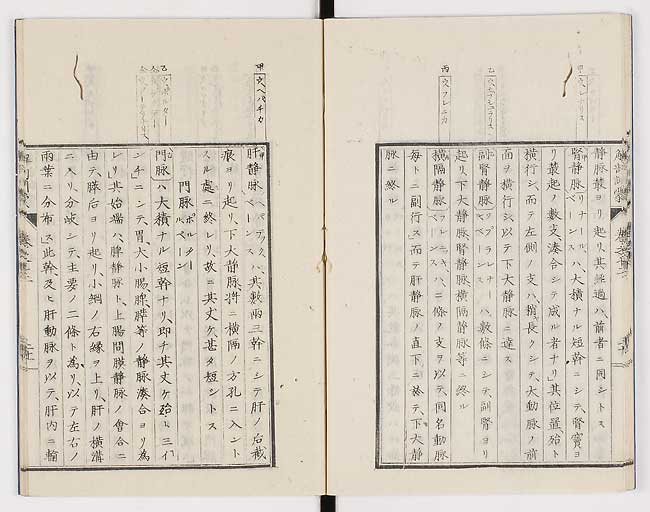 甲 ウ、レナリス
乙 ウ、シュプラレナリス
丙 ウ、フレニカ
静脉叢ヨリ起リ、其経過ハ、前者ニ同シトス
腎静脉リナール、ベーンスハ、大横ナル短幹ニシテ、腎竇ヨ
リ、叢起ノ數支湊合シテ成ル者ナリ」其位置、殆ト
横行シ、而テ左側ノ支ハ、稍長クシテ、大動脉ノ前
面ヲ横行シ、以テ下大静脉ニ達ス
副腎静脉シュプラレナール、ベーンスハ、數條ニシテ、副腎ヨリ
起リ、下大静脉腎静脉横隔静脉等ニ終ル
横隔静脉フレニッキ、ベーンスハ、二條ノ支ヲ以テ、同名動脉
毎トニ副行ス、而テ肝静脉ノ直下ニ於テ、下大静
脉ニ終ル
甲 ウ、ヘパチカ
乙 ウ、ポルター
肝静脉ヘパチック、ベーンスハ、其數兩三幹ニシテ、肝ノ后截
痕ヨリ起リ、下大静脉將ニ横隔ノ方孔ニ入ント
スル處ニ終レリ、故ニ其丈ケ、甚タ短シトス
門脉ポルターベーン
門脉ハ、大横ナル短幹ナリ、即チ其丈ケ殆ト三イ
ンチニシテ、胃大小腸脾膵等ノ静脉湊合ヨリ為
レリ」其始端ハ、脾静脉ト、上腸間膜静脉ノ會合ニ
由テ、膵后ヨリ起リ、小網ノ右縁ヲ上リ、肝ノ横溝
ニ入リ、分岐シテ、主要ノ二條ト為リ、以テ左右ノ
兩葉ニ分布ス」此幹及ヒ肝動脉ヲ以テ、肝内ニ輸